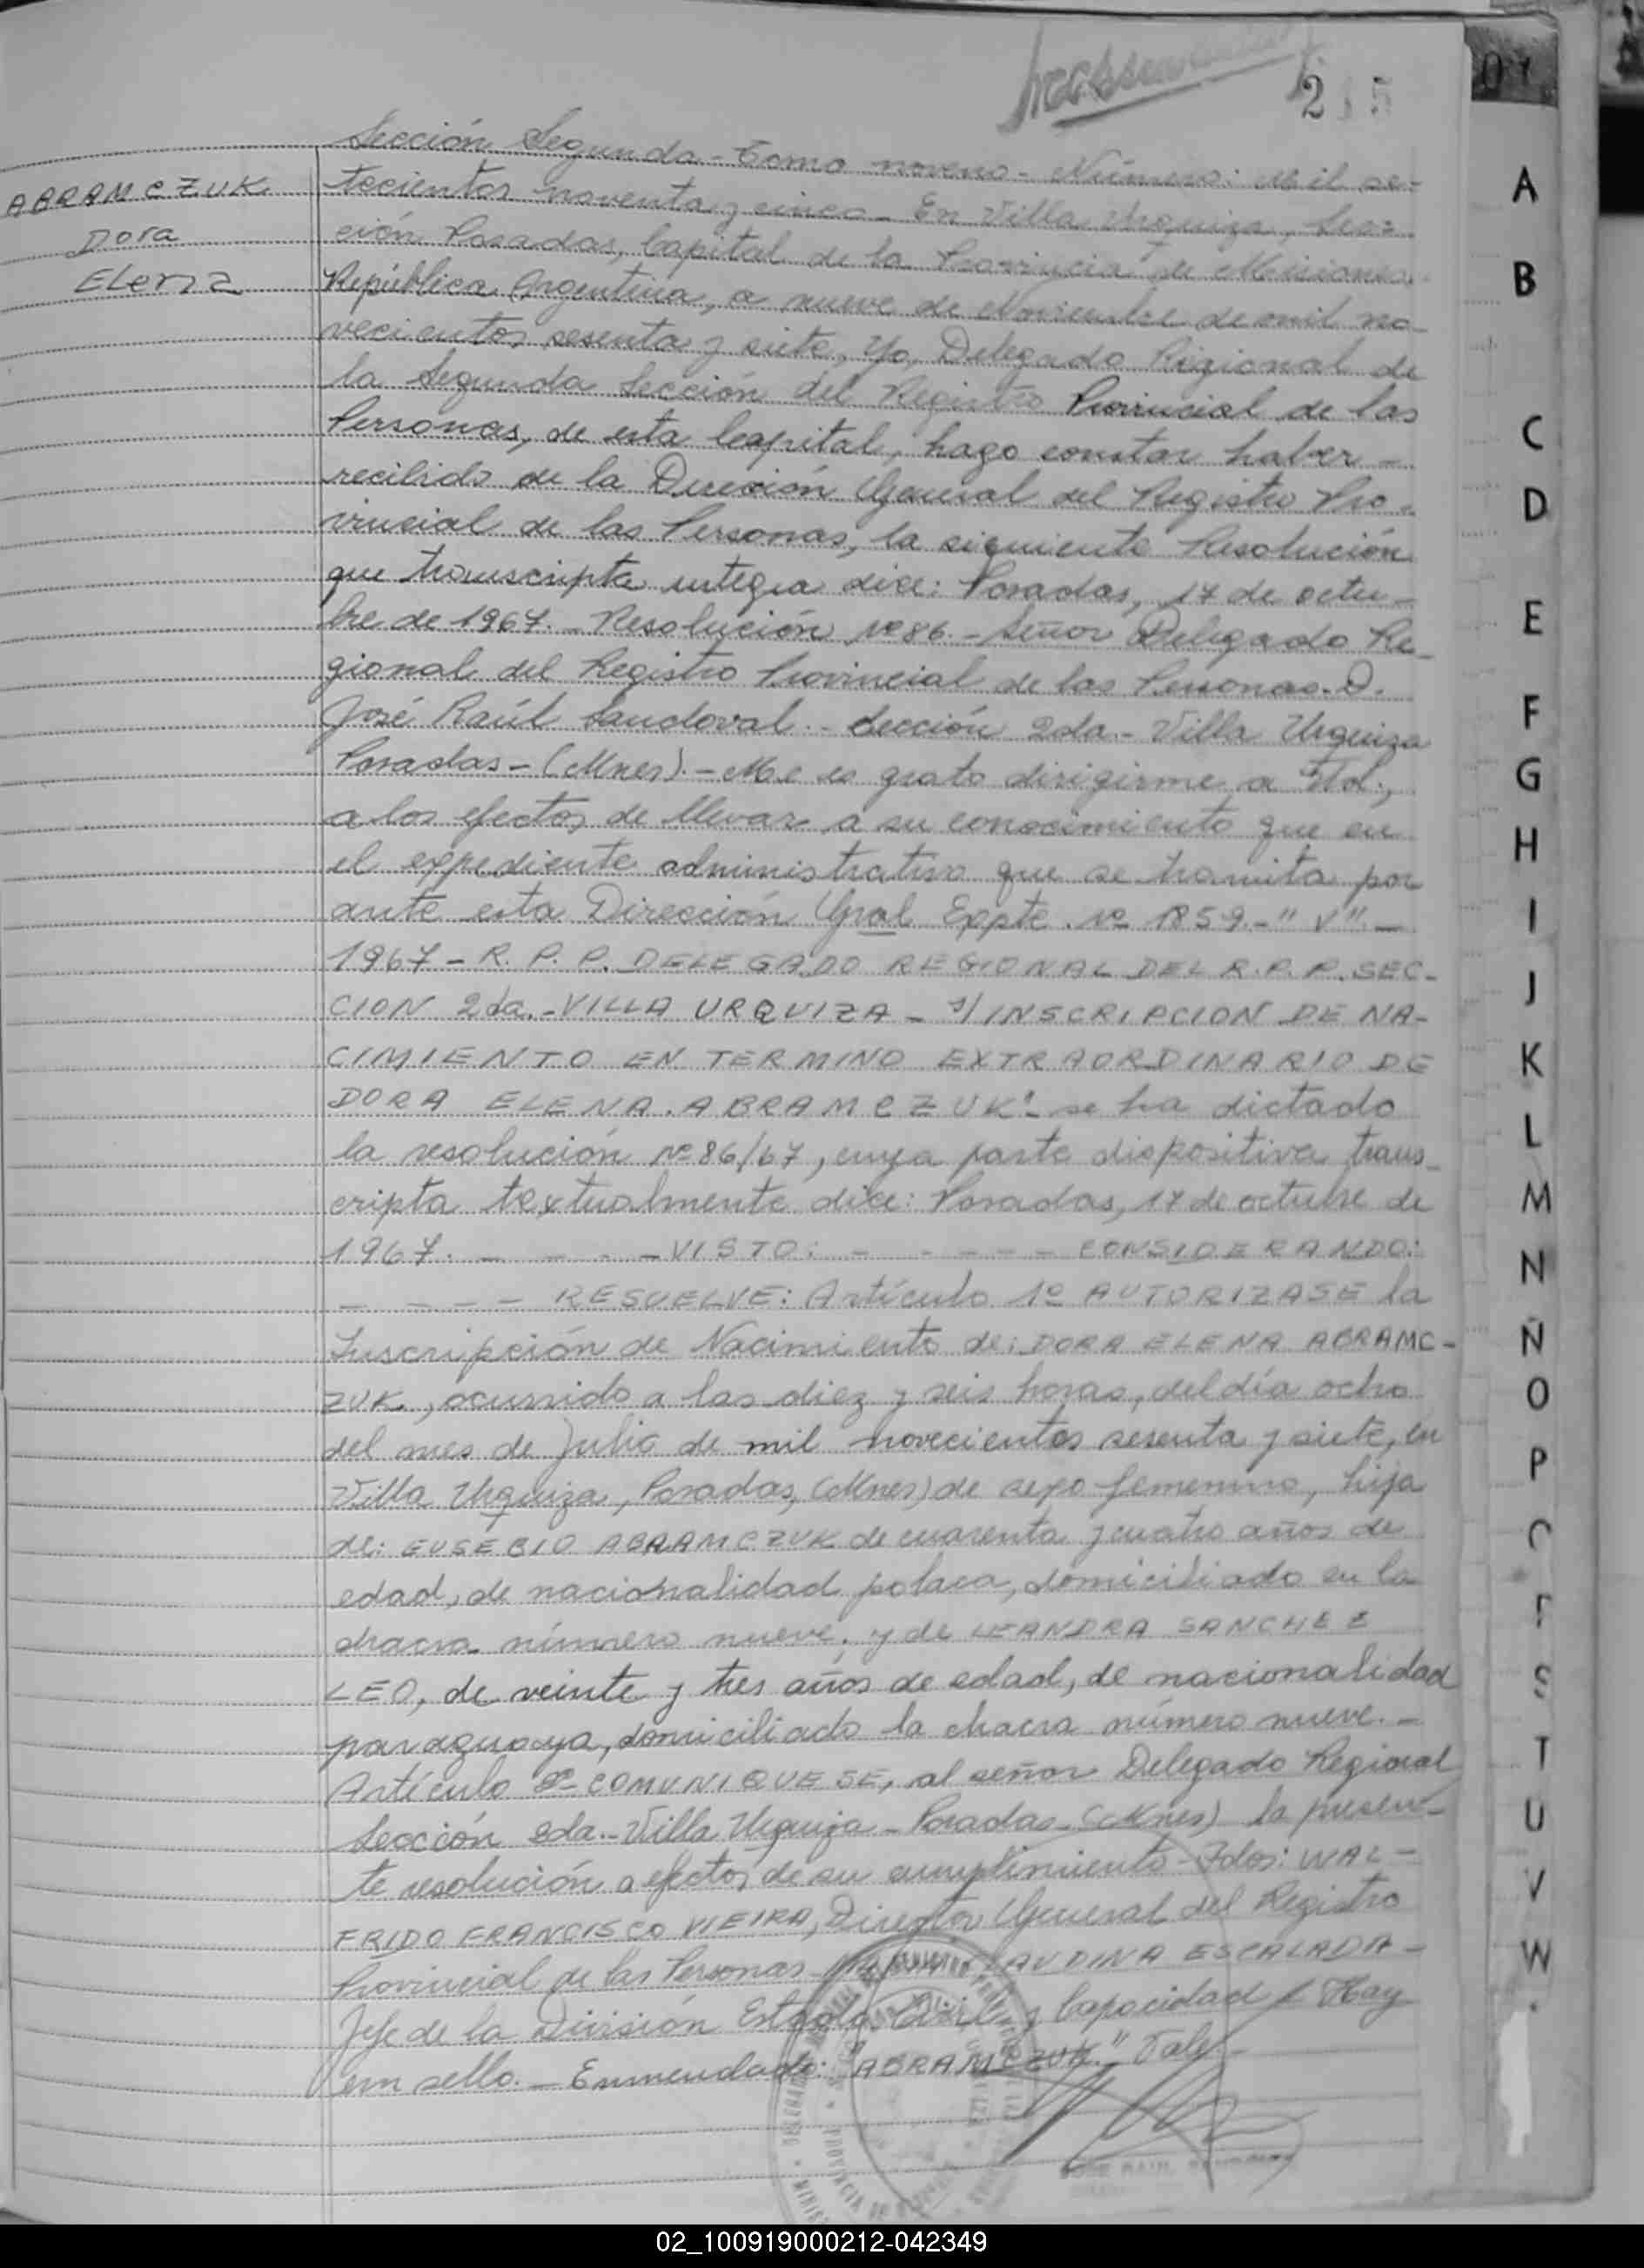 215
Sección Segunda - Tomo noveno - Número: Mil se-
tecientos noventa y cinco - En Villa Urquiza, Sec-
ción Posadas, Capital de la Provincia de Misiones,
República Argentina, a nueve de Noviembre de mil no-
vecientos sesenta y siete, Yo, Delegado Regional de
la Segunda Sección del Registro Provincial de las
Personas, de esta Capital, hago constar haber -
recibido de la Dirección General del Registro Pro-
vincial de las Personas, la siguiente Resolución
que transcripta integra dice: Posadas, 17 de octu-
bre de 1967. - Resolución Nº 86 - Señor Delegado Re-
gional del Registro Provincial de las Personas. D.
José Raúl Sandoval - Sección 2da. - Villa Urquiza
Posadas - (Mnes). - Me es grato dirigirme a Ud.,
a los efectos de llevar a su conocimiento que en
el expediente administrativo que se tramita por
ante esta Dirección Gral Expte. Nº 1859 - "V" -
1967 - R. P. P. DELEGADO REGIONAL DEL R. P. P. SEC-
CION 2da. - VILLA URQUIZA - s/ INSCRIPCION DE NA-
CIMIENTO EN TERMINO EXTRAORDINARIO DE
DORA ELENA ABRAMCZUK" - se ha dictado
la resolución Nº 86/67, cuya parte dispositiva trans-
cripta textualmente dice: Posadas, 17 de octubre de
1967. - - - - VISTO: - - - - - CONSIDERANDO:
- - - - RESUELVE: Artículo 1º AUTORIZASE la
Inscripción de Nacimiento de: DORA ELENA ABRAMC-
ZUK, ocurrido a las diez y seis horas, del día ocho
del mes de Julio de mil novecientos sesenta y siete, en
Villa Urquiza, Posadas, (Mnes) de sexo femenino, hija
de: EUSEBIO ABRAMCZUK de cuarenta y cuatro años de
edad, de nacionalidad polaca, domiciliado en la
chacra número nueve, y de LEANDRA SANCHEZ
LEO, de veinte y tres años de edad, de nacionalidad
paraguaya, domiciliado la chacra número nueve. -
Artículo 2º COMUNIQUESE, al señor Delegado Regional
Sección 2da. - Villa Urquiza - Posadas - (Mnes) la presen-
te resolución a efectos de su cumplimiento - Fdos: WAL-
FRIDO FRANCISCO VIEIRA, Director General del Registro
Provincial de las Personas - ESCALADA -
Jefe de la División Estado Civil y Capacidad - Hay
un sello. - Enmendado: "ABRAMCZUK" Vale -
ABRAMCZUK
Dora
Elena
A
B
C
D
E
F
G
H
I
J
K
L
M
N
Ñ
O
P
S
T
U
V
W
02_100919000212-042349